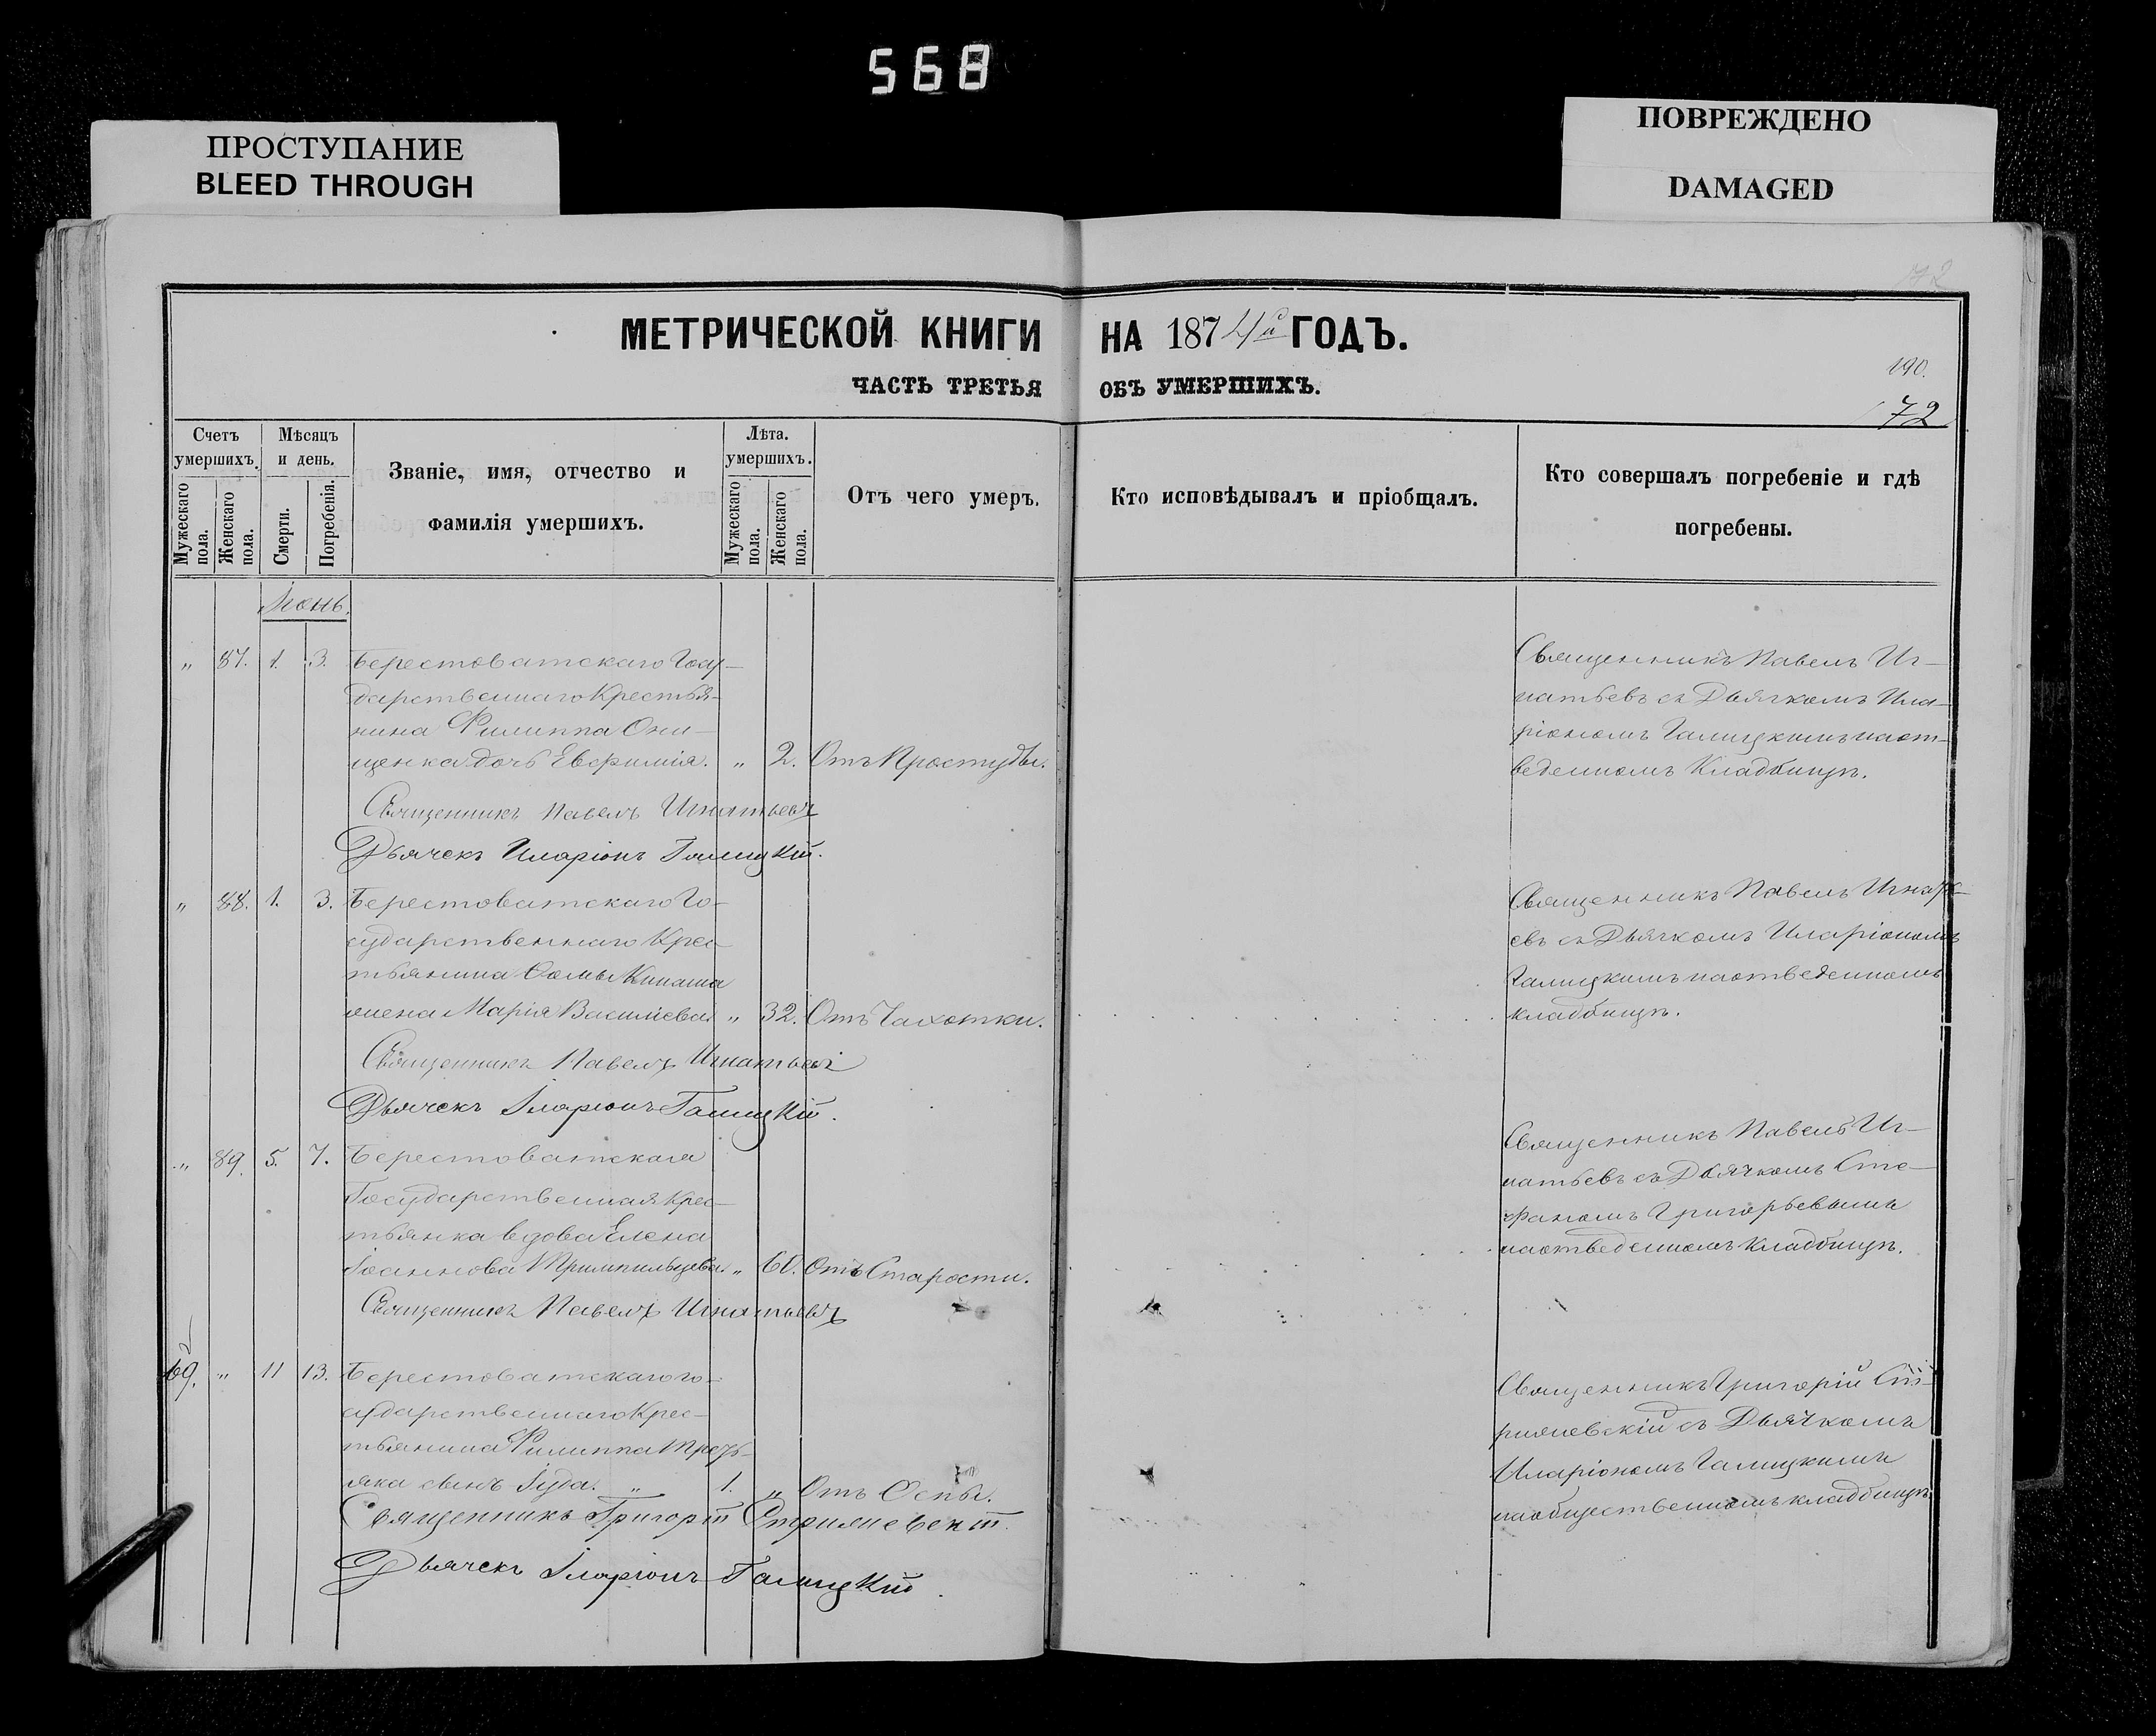 568
ПРОСТУПАНИЕ
BLEED THROUGH
ПОВРЕЖДЕНО
DAMAGED
МЕТРИЧЕСКОЙ КНИГИ НА 1874й ГОДЪ.
ЧАСТЬ ТРЕТЬЯ ОБЪ УМЕРШИХЪ.
190.
172
Счетъ умершихъ.
Мужескаго пола.
Женскаго пола.
Мѣсяцъ и день.
Смерти.
Погребенія.
Званіе, имя, отчество и
фамилія умершихъ.
Лѣта умершихъ.
Мужескаго пола.
Женскаго пола.
Отъ чего умеръ.
Кто исповѣдывалъ и пріобщалъ.
Кто совершалъ погребеніе и гдѣ
погребены.
Іюнь.
„ 87. 1. 3. Берестоватскаго Госу-
дарственнаго Крестья-
нина Филиппа Они-
щенка дочь Евфимія. „ 2. Отъ Простуды.
Священникъ Павелъ Иг-
натьевъ съ Дьячкомъ Ила-
ріономъ Галицкимъ на от-
веденномъ Кладбищѣ.
Священникъ Павелъ Игнатьевъ
Дьячекъ Иларіонъ Галицкій.
„ 88. 1. 3. Берестоватскаго Го-
сударственнаго Крес-
тьянина Фомы
жена Марія Василіева „ 32. Отъ Чахотки.
Священникъ Павелъ Игнать-
евъ съ Дьячкомъ Иларіономъ
Галицкимъ на отведенномъ
кладбищѣ.
Священникъ Павелъ Игнатьевъ
Дьячекъ Іларіонъ Галицкій.
„ 89. 5. 7. Берестоватская
Государственная Крес-
тьянка вдова Елена
Іоаннова „ 60. Отъ Старости.
Священникъ Павелъ Иг-
натьевъ съ Дьячкомъ Сте-
фаномъ Григорьевымъ
на отведенномъ Кладбищѣ.
Священникъ Павелъ Игнатьевъ
69. „ 11 13. Берестоватскаго Го-
сударственнаго Крес-
тьянина Филиппа Треть-
яка сынъ Іуда. „ 1. „ Отъ Оспы.
Священникъ Григорій
съ Дьячкомъ
Иларіономъ Галицкимъ
на общественномъ кладбищѣ.
Священникъ Григорій
Дьячекъ Іларіонъ Галицкій.